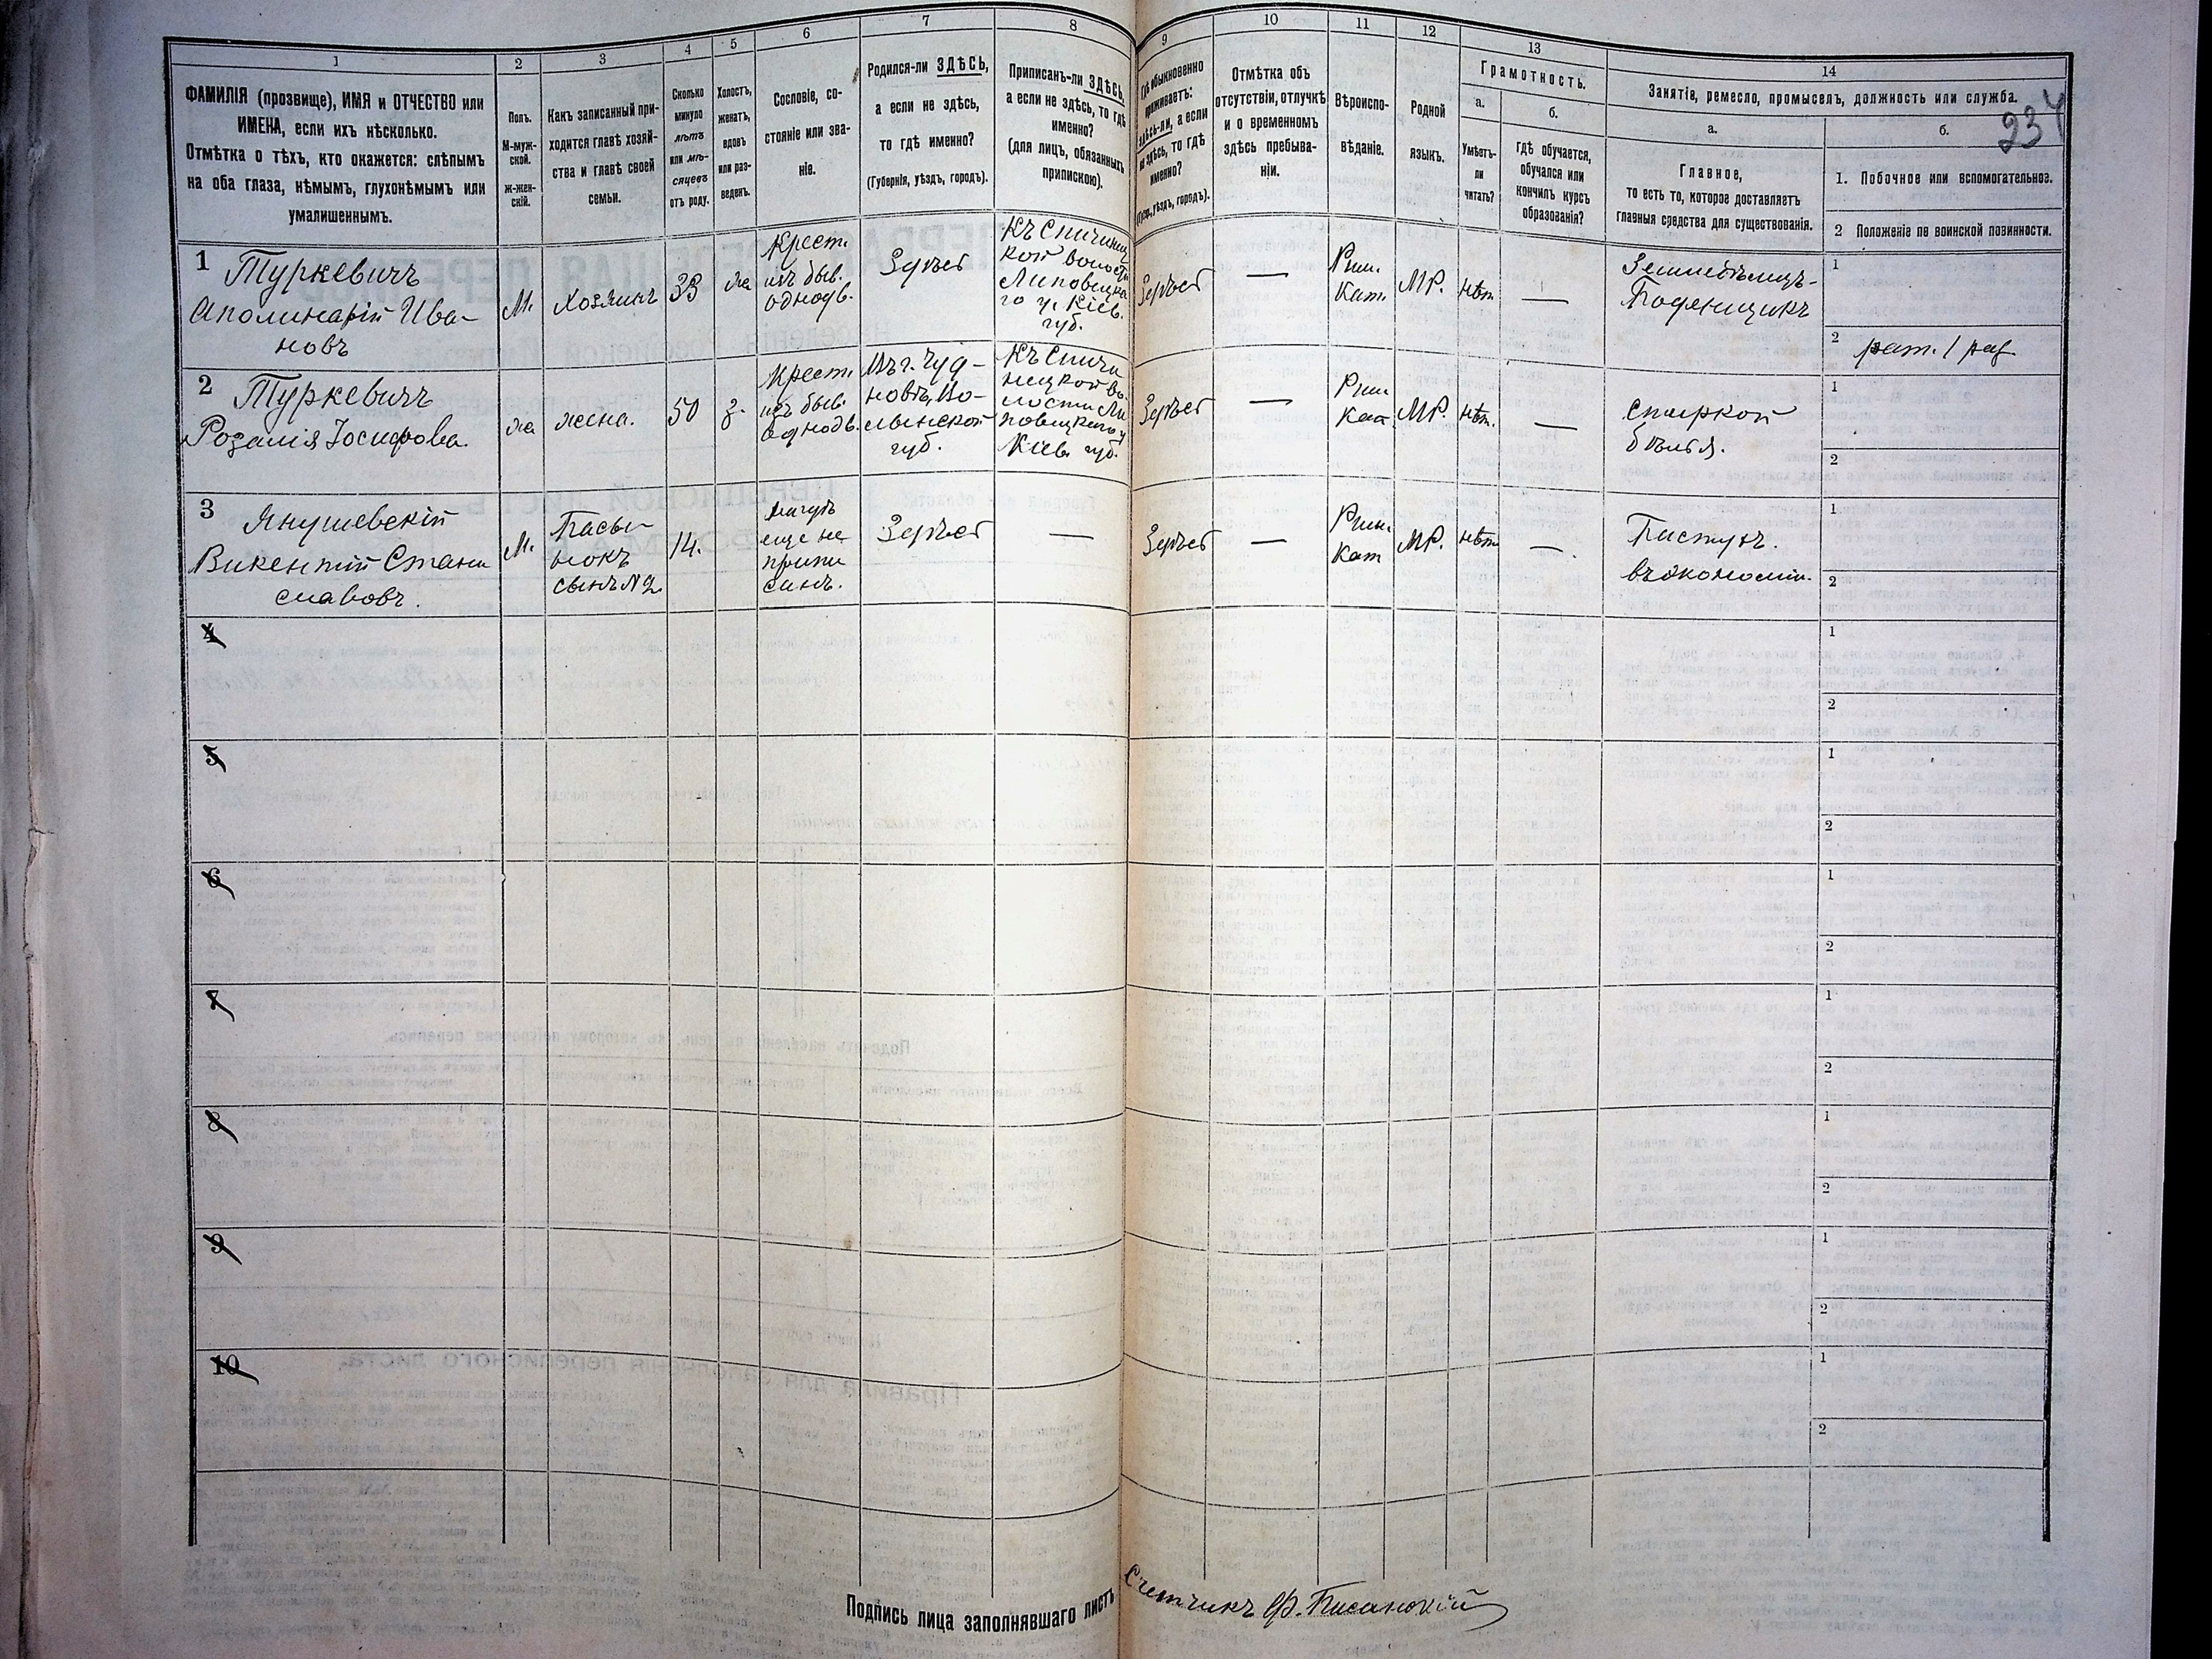 1
2
3
4
5
6
7
8
9
10
11
12
13
14
234
ФАМИЛІЯ (прозвище), ИМЯ и ОТЧЕСТВО или
ИМЕНА, если ихъ нѣсколько.
Отмѣтка о тѣхъ, кто окажется: слѣпымъ
на оба глаза, нѣмымъ, глухонѣмымъ или
умалишеннымъ.
Полъ.
М-муж-
ской.
Ж-жен-
скій.
Какъ записанный при-
ходится главѣ хозяй-
ства и главѣ своей
семьи.
Сколько
минуло
лѣтъ
или мѣ-
сяцевъ
отъ роду.
Холостъ,
женатъ,
вдовъ
или раз-
веденъ.
Сословіе, со-
стояніе или зва-
ніе.
Родился-ли ЗДѢСЬ,
а если не здѣсь,
то гдѣ именно?
(Губернія, уѣздъ, городъ).
Приписанъ-ли ЗДѢСЬ,
а если не здѣсь, то гдѣ
именно?
(для лицъ, обязанныхъ
припискою).
Гдѣ обыкновенно
проживаетъ:
здѣсь-ли, а если
не здѣсь, то гдѣ
именно?
(Губ., уѣздъ, городъ).
Отмѣтка объ
отсутствіи, отлучкѣ
и о временномъ
здѣсь пребыва-
ніи.
Вѣроиспо-
вѣданіе.
Родной
языкъ.
Грамотность.
а.
Умѣетъ-
ли
читать?
б.
гдѣ обучается,
обучался или
кончилъ курсъ
образованія?
Занятіе, ремесло, промыселъ, должность или служба.
а.
Главное,
то есть то, которое доставляетъ
главныя средства для существованія.
б.
1. Побочное или вспомогательное.
2 Положеніе по воинской повинности.
1 Туркевичъ
Аполинарій Ива-
новъ
М.
Хозяинъ
33
жа
Крест.
изъ быв.
однодв.
Здѣсь
Къ Спичинец
кой волости
Липовецка
го у. Кіев.
губ.
Здѣсь
—
Рим.
Кат.
МР.
нѣт
—
Земледѣлецъ-
Поденщикъ
1
2 рат. 1 раз.
2 Туркевичъ
Розалія Іосифова
жа
жена.
50
з.
Крест.
изъ быв.
однодв.
Въ г. Чуд-
новѣ, Во-
лынской
губ.
Къ Спичи
нецкой во
лости Ли
повецкаго у
Кіев. губ.
Здѣсь
Рим
Кат
МР.
нѣт.
—
стиркой
бѣлья.
1
2
3 Янушевскій
Викентій Стани
славовъ.
М.
Пасы-
нокъ
сынъ № 2
14.
еще не
припи
санъ.
Здѣсь
—
Здѣсь
—
Рим.
Кат
МР.
нѣт
—.
Пастухъ.
въ экономіи.
1
2
4
1
2
5
1
2
6
1
2
7
1
2
8
1
2
9
1
2
10
1
2
Подпись лица заполнявшаго листъ Счетчикъ Ф. Писанскій